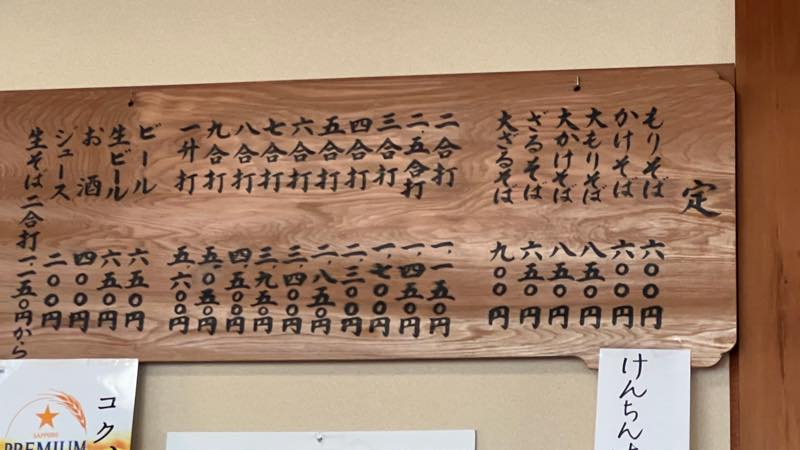 定
もりそば 六〇〇円
かけそば 六〇〇円
大もりそば 八五〇円
大かけそば 八五〇円
ざるそば 六五〇円
大ざるそば 九〇〇円
二合打 一、一五〇円
二、五合打 一、四五〇円
三合打 一、七〇〇円
四合打 二、三〇〇円
五合打 二、八五〇円
六合打 三、四〇〇円
七合打 三、九五〇円
八合打 四、五〇〇円
九合打 五、〇五〇円
一升打 五、六〇〇円
ビール 六五〇円
生ビール 六五〇円
お酒 四〇〇円
ジュース 二〇〇円
生そば二合打 一、一五〇円から
けんちん
コク
SAPPORO
PREMIUM